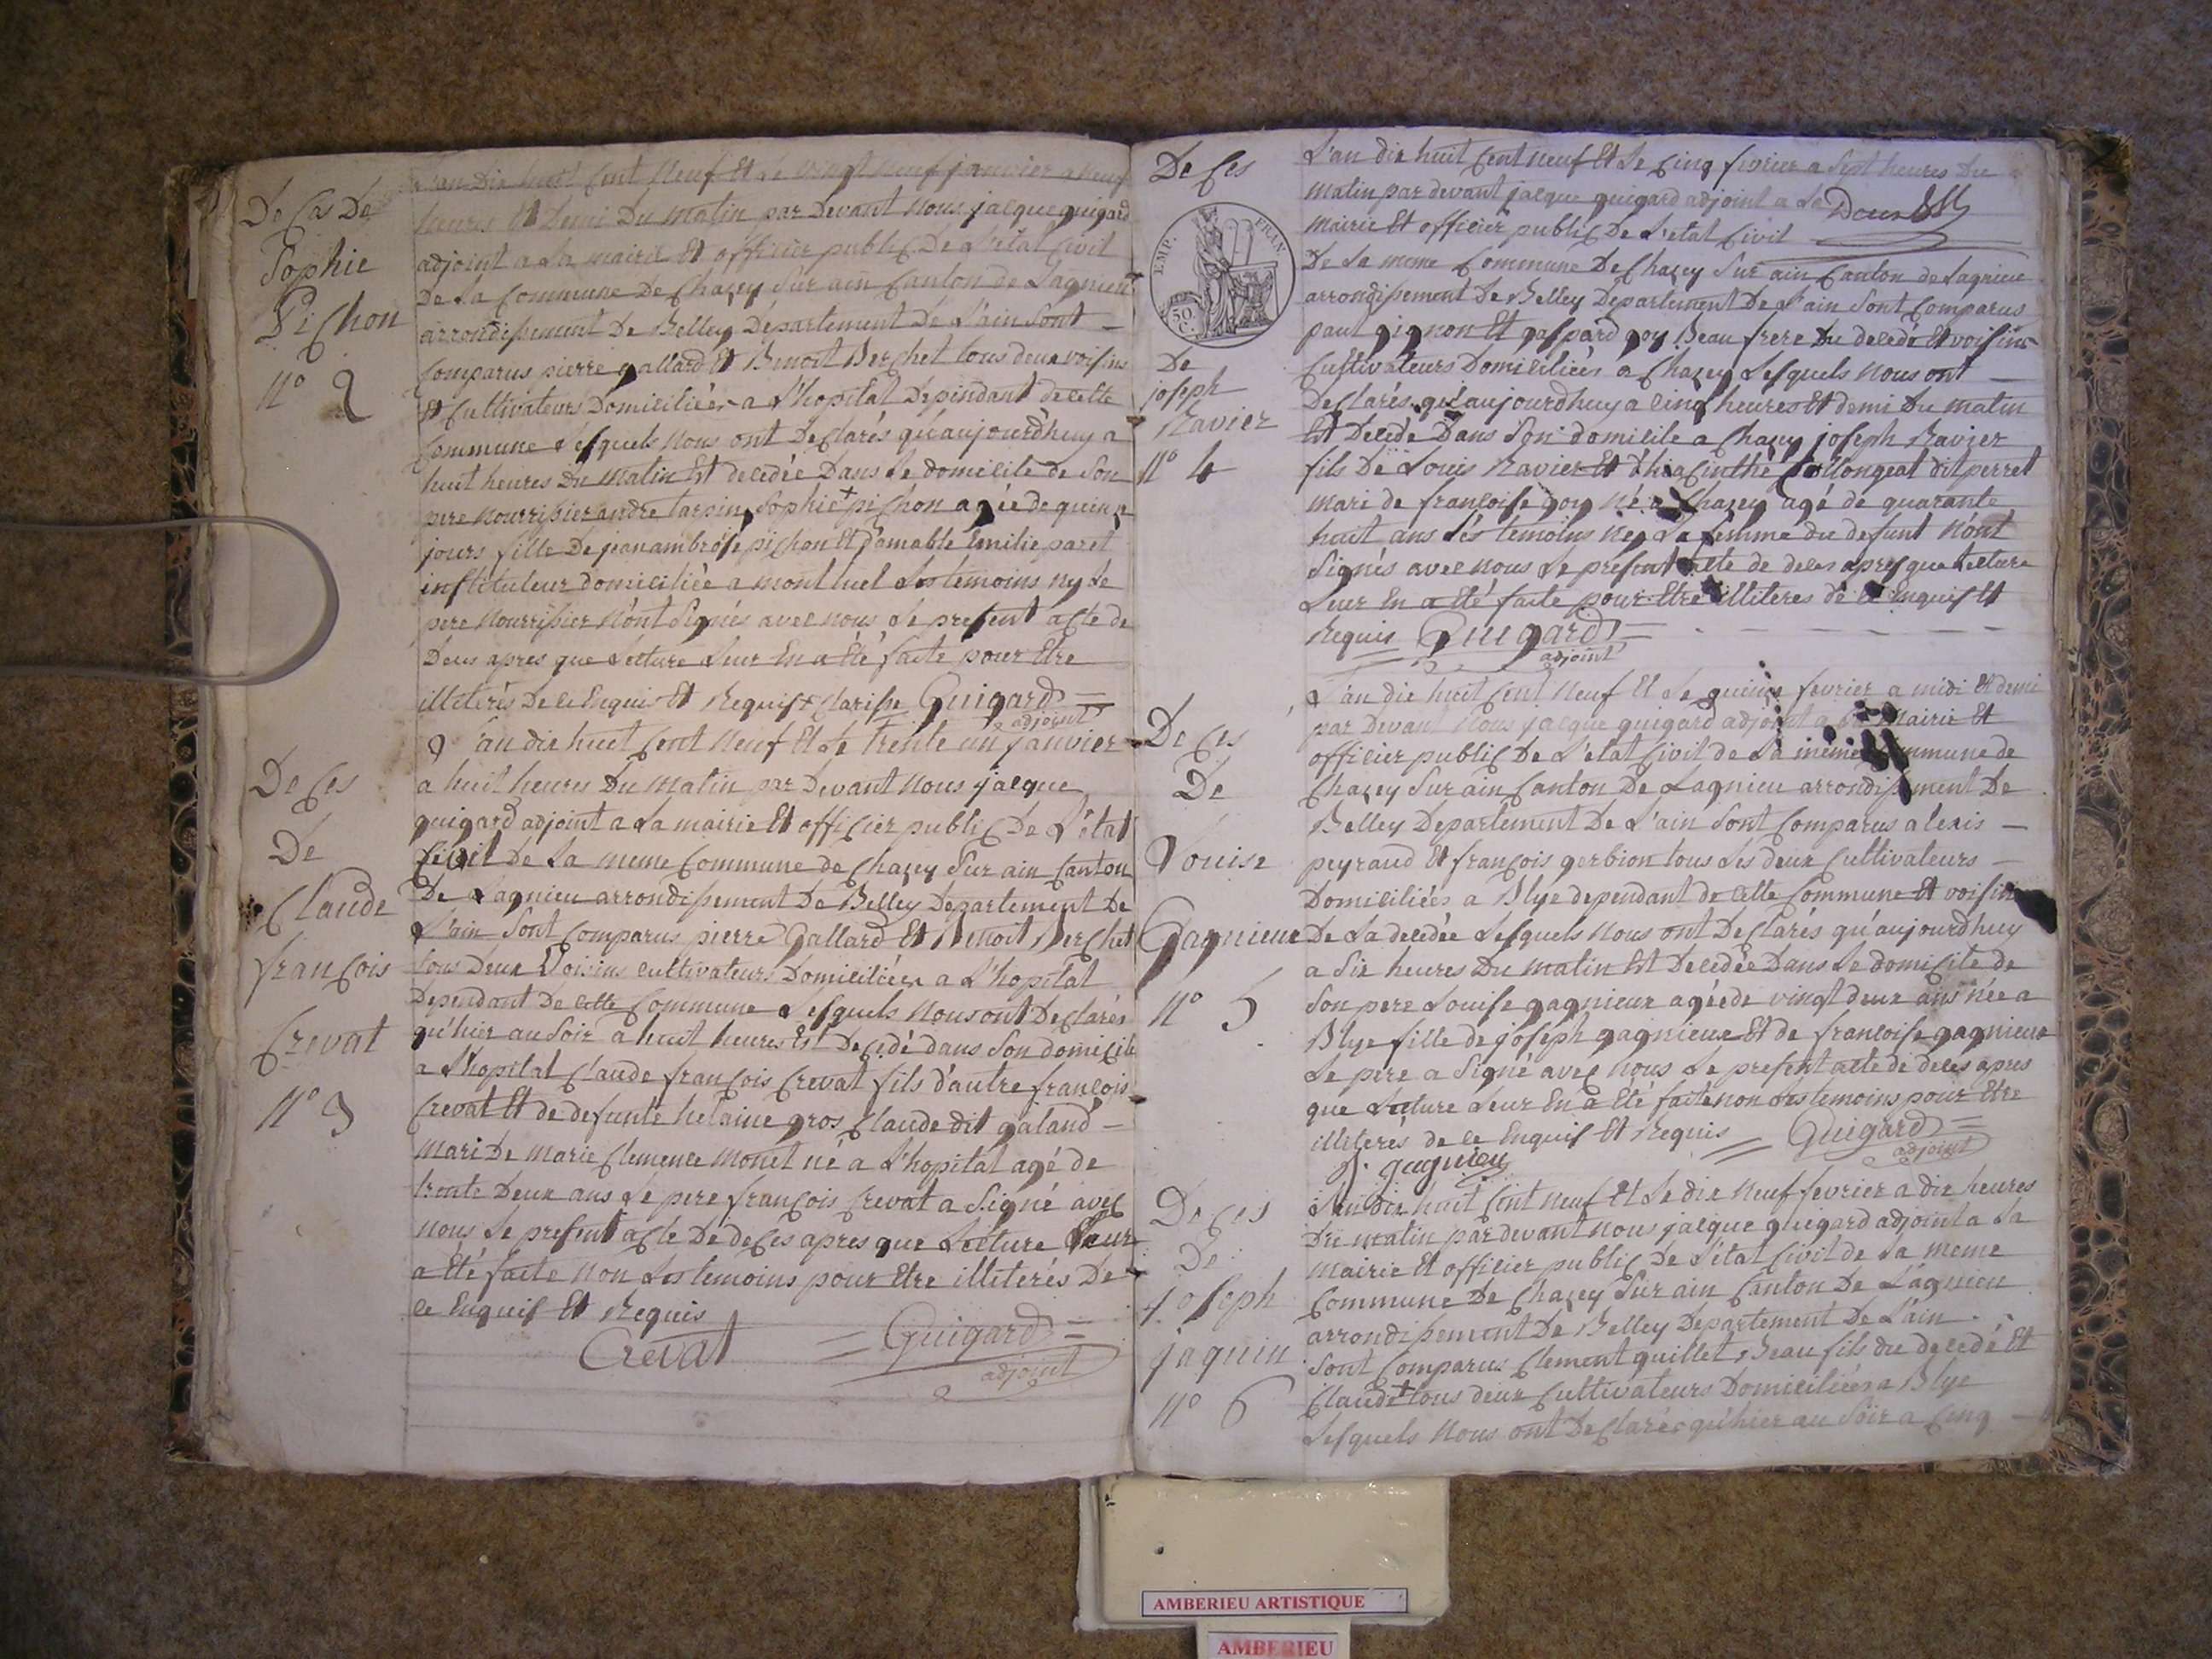 Deces De
Sophie
Pichon
N° 2
L'an Dix huit Cent Neuf Et Le vingt neuf janvier a neuf
heures Et Demi Du matin par Devant Nous jacque guigard
adjoint a La mairie Et officier public De L'etat Civil
De La Commune De Chazey Sur ain Canton de Lagnieu
arrondissement De Belley Département De L'ain Sont
Comparus pierre gallard Et Benoit Berchet tous deux voisins
Et Cultivateurs Domiciliées a L'hopital Dependant de cette
Commune Lesquels Nous ont Declarés qu'aujourdhuy a
huit heures Du Matin Est decedée Dans Le domicile de Son
pere Nourrissier andre tarpin Sophie + pichon agée de quinze
jours fille De jean ambroise pichon Et d'amable Emilie paret
instituteur domiciliée a montluel Les temoins ny Le
pere Nourrissier N'ont Signés avec nous Le present acte de
Déces apres que Lecture Leur En a Eté faite pour Etre
illiterés De ce Enquis Et Requis + Clarisse Guigard
adjoint
Deces
De
Claude
françois
Crevat
N° 3
L'an dix huit Cent Neuf Et Le trente un janvier
a huit heures Du Matin par Devant Nous jacque
guigard adjoint a La mairie Et officier public De L'état
Civil De La meme Commune de Chazey Sur ain Canton
De Lagnieu arrondissement De Belley Departement De
L'ain Sont Comparus pierre Gallard Et Benoit Berchet
tous Deux Voisins cultivateurs Domiciliées a L'hopital
Dependant De cette Commune Lesquels Nous ont Declarés
qu'hier au Soir a huit heures Est Decedé dans Son domicile
a L'hopital Claude françois Crevat fils d'autre françois
Crevat Et de defunte helaine gros Claude dit galand
Mari De Marie Clemence Monet né a L'hopital agé de
trente Deux ans Le pere françois Crevat a Signé avec
Nous Le present acte De deces apres que Lecture Leur
a Eté faite Non Les temoins pour Etre illiterés De
ce Enquis Et Requis
Crevat Guigard
adjoint
Deces
EMP. FRAN.
50 C.
De
joseph
Ravier
N° 4
L'an dix huit Cent neuf Et Le Cinq fevrier a Sept heures Du
matin par devant jacque guigard adjoint a La
Mairie Et officier public De L'etat Civil
De La meme Commune De Chazey Sur ain Canton de Lagnieu
arrondissement De Belley Departement De L'ain Sont Comparus
paul gignon Et gaspard goy Beau frere Du decedé Et voisins
Cultivateurs Domiciliées a Chazey Lesquels Nous ont
Declarés qu'aujourdhuy a cinq heures Et demi Du matin
Est Decedé Dans Son domicile a Chazey joseph Ravier
fils De Louis Ravier Et d'hiacinthe Collongeat dit perret
mari de françoise goy Né a Chazey agé de quarante
huit ans Les temoins Ney La femme du defunt N'ont
Signés avec nous Le present acte de deces apres que Lecture
Leur En a Eté faite pour Etre illiteres de ce Enquis Et
Requis Guigard
adjoint
Deces
De
Louise
Gagnieux
N° 5
L'an dix huit Cent Neuf Et Le quinze fevrier a midi Et demi
par Devant Nous jacque guigard adjoint a La Mairie Et
officier public De L'etat Civil de La meme Commune de
Chazey Sur ain Canton De Lagnieu arrondissement De
Belley Departement De L'ain Sont Comparus alexis
peyraud Et françois gerbion tous Les deux Cultivateurs
Domiciliées a Blye dependant de cette Commune Et voisins
De La decedée Lesquels Nous ont Declarés qu'aujourdhuy
a Six heures Du matin Est Decedée Dans Le domicile de
Son pere Louise gagnieux agée de vingt deux ans Née a
Blye fille de joseph gagnieux Et de françoise gagnieux
Le pere a Signé avec nous Le present acte de deces apres
que Lecture Leur En a Eté faite non Les temoins pour Etre
illiterés de ce Enquis Et Requis Guigard
adjoint
J. gagnieu
Deces
De
joseph
jaquin
N° 6
L'an Dix huit Cent Neuf Et Le dix Neuf fevrier a dix heures
Du matin par devant nous jacque guigard adjoint a La
Mairie Et officier public De L'état Civil de La meme
Commune De Chazey Sur ain Canton De Lagnieu
arrondissement De Belley Departement De L'ain
Sont Comparus Clement quillet Beau fils du decedé Et
Claude + tous deux Cultivateurs Domiciliées a Blye
Lesquels Nous ont Declarés qu'hier au Soir a Cinq
AMBERIEU ARTISTIQUE
AMBERIEU